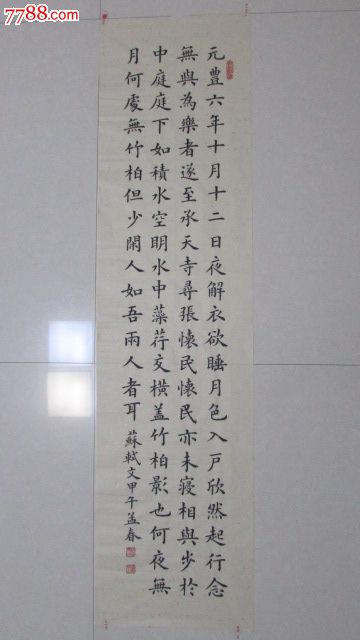 7788.com
元豐六年十月十二日夜解衣欲睡月色入戶欣然起行念
無與為樂者遂至承天寺尋張懷民懷民亦未寢相與步於
中庭庭下如積水空明水中藻荇交橫蓋竹柏影也何夜無
月何處無竹柏但少閑人如吾兩人者耳
蘇軾文甲午孟春